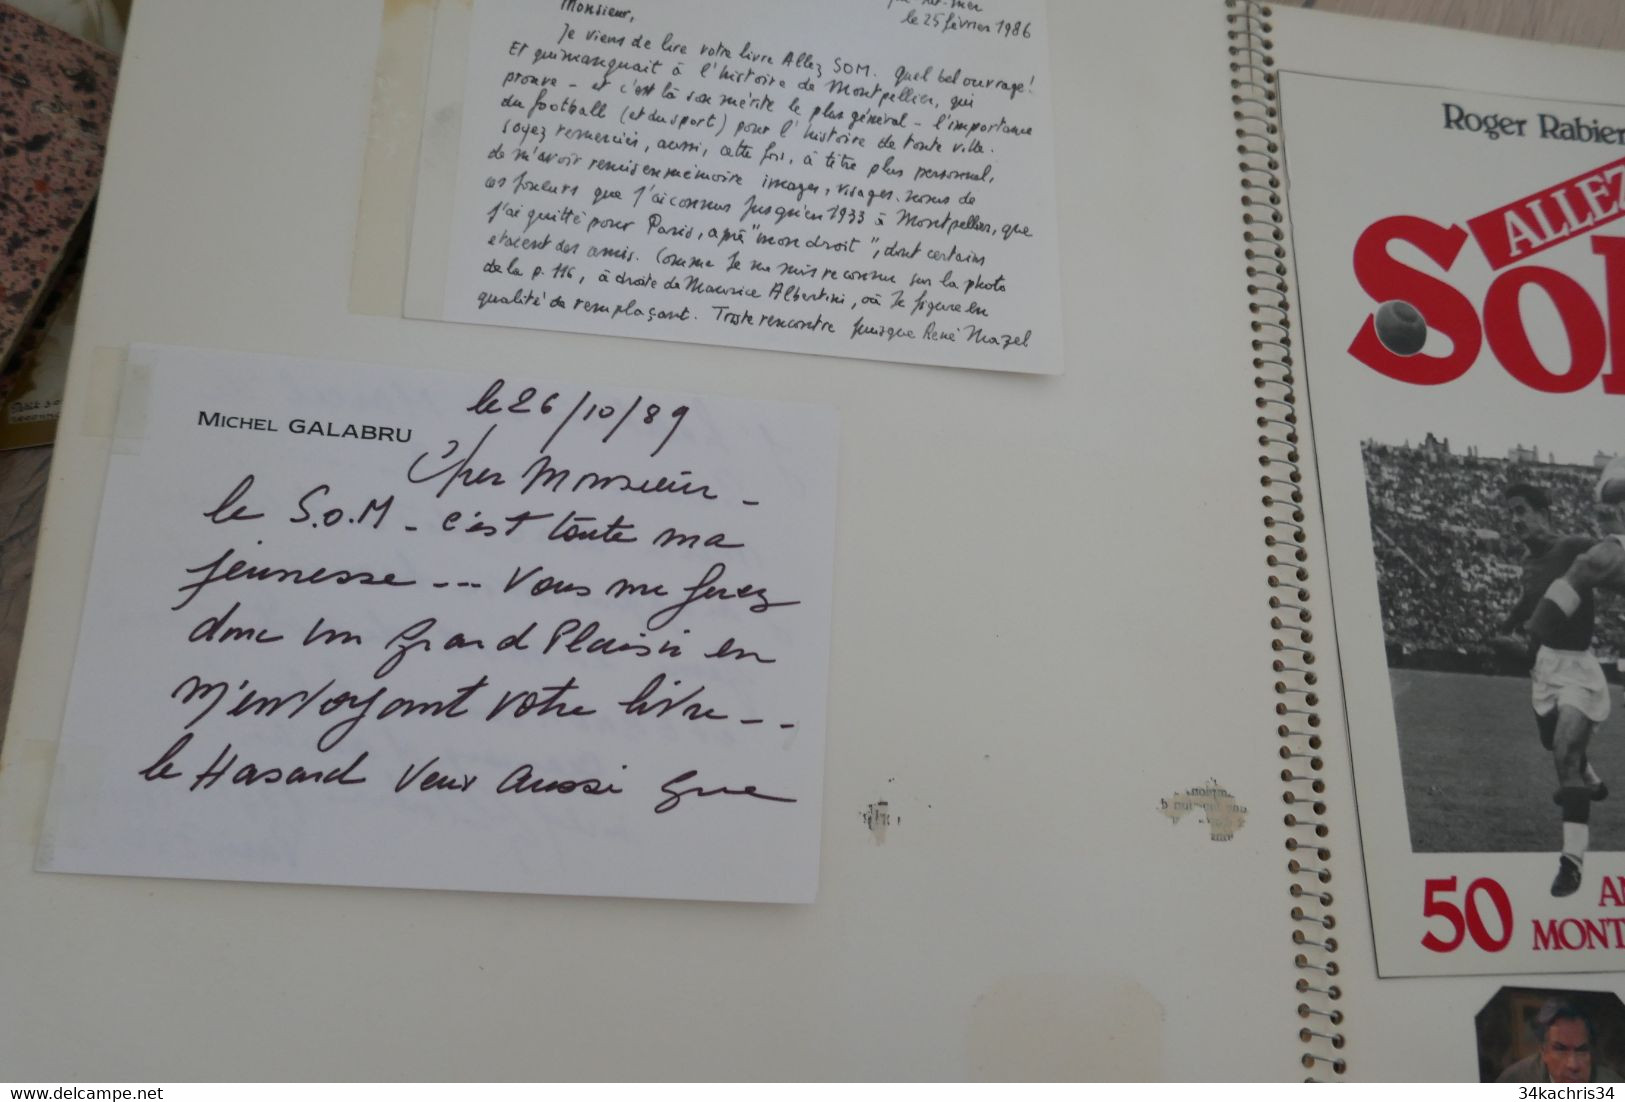 Monsieur,
le 25 février 1986
Je viens de lire votre livre Allez SOM. Quel bel ouvrage!
Et qui manquait à l'histoire de Montpellier, qui
prouve - et c'est là son mérite le plus général - l'importance
du football (et du sport) pour l'histoire de toute ville.
Soyez remerciés, aussi, cette fois, à titre plus personnel,
de m'avoir remis en mémoire images, visages, noms de
ces joueurs que j'ai connus jusqu'en 1933 à Montpellier, que
j'ai quitté pour Paris, après "mon droit", dont certains
étaient des amis. Comme je me suis reconnu sur la photo
de la p. 116, à droite de Maurice Albertini, où je figure en
qualité de remplaçant. Triste rencontre puisque René Mazel
MICHEL GALABRU
le 26/10/89
Cher Monsieur -
le S.O.M - c'est toute ma
jeunesse --- Vous me ferez
donc un grand plaisir en
m'envoyant votre livre---
le Hasard veut aussi que
Roger Rabier
ALLEZ
SO
50
MONT
34kachris34